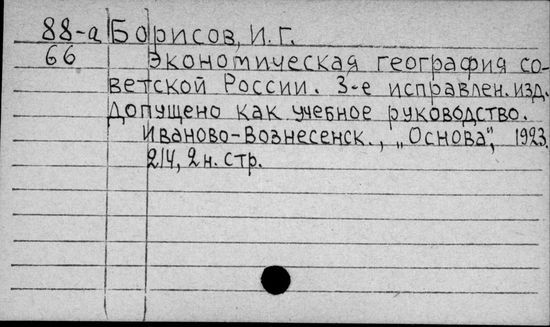 88-а Борисов, И.Г.
66 Экономическая география со-
ветской России. 3-е исправлен. изд.
Допущено как учебное руководство.
Иваново-Вознесенск., „Основа", 1923.
214, 2 н. стр.